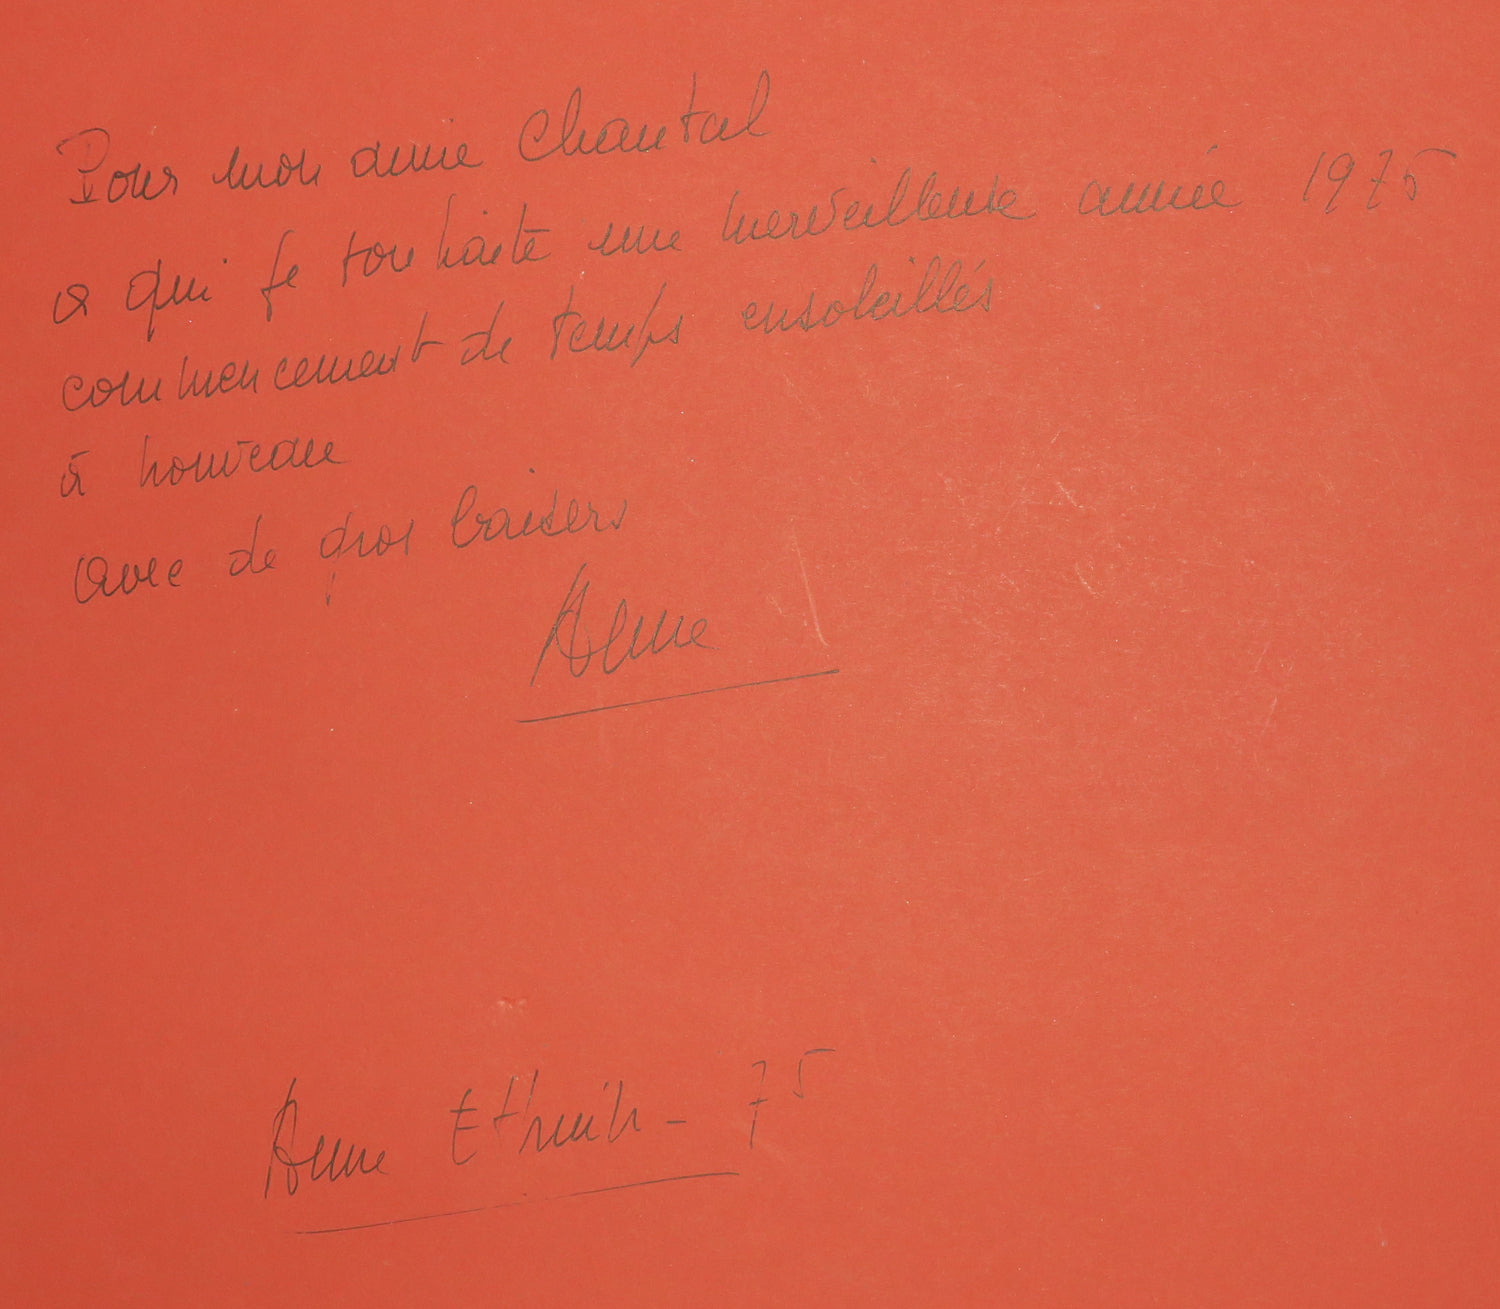 Pour mon amie Chantal
a qui je souhaite une merveilleuse année 1975
commencement de temps ensoleillés
à nouveau
avec de gros baisers
Anne
Anne Ethuin - 75